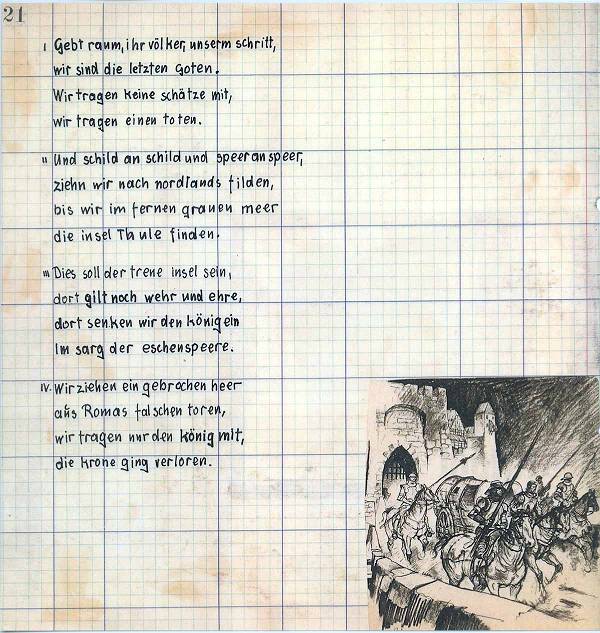 21
I Gebt raum, ihr völker, unserm schritt,
wir sind die letzten Goten.
Wir tragen keine schätze mit,
wir tragen einen toten.
II Und schild an schild und speer an speer,
ziehn wir nach nordlands filden,
bis wir im fernen grauen meer
die insel Thule finden.
III Dies soll der treue insel sein,
dort gilt noch wehr und ehre,
dort senken wir den könig ein
Im sarg der eschenspeere.
IV. Wir ziehen ein gebrochen heer
aus Romas falschen toren,
wir tragen nur den könig mit,
die krone ging verloren.